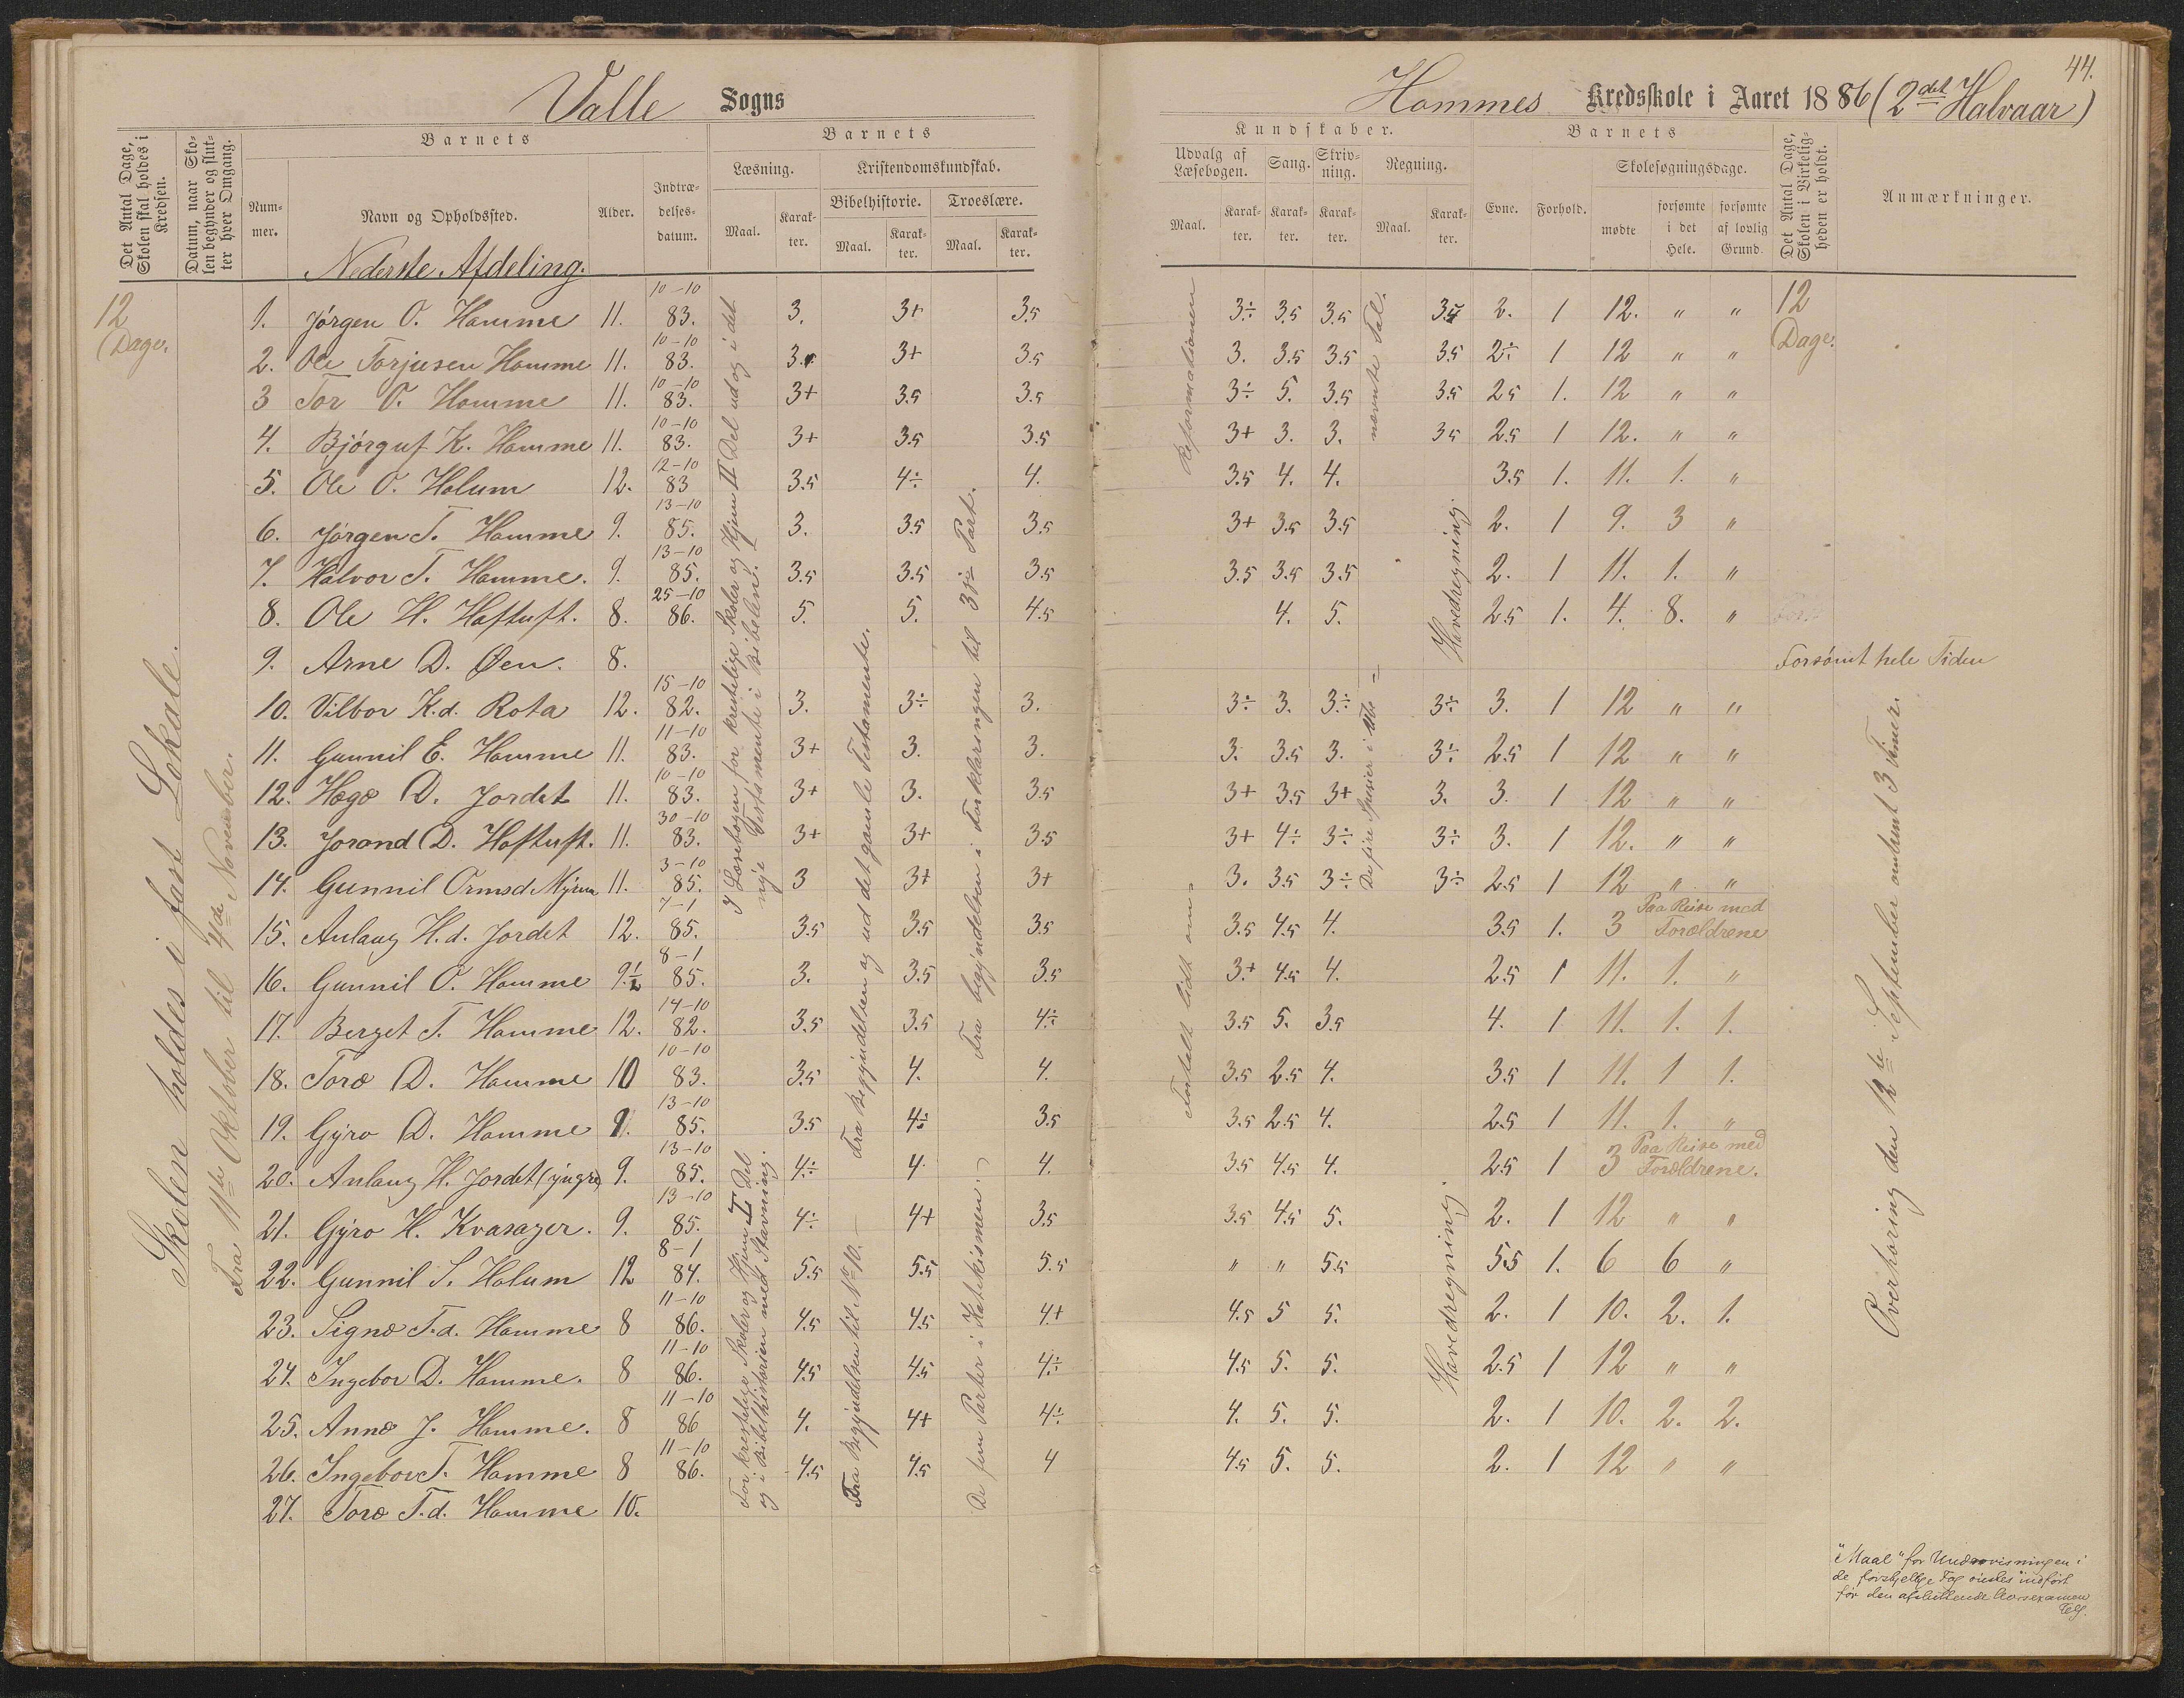 44.
Valle Sogns
Hommes Kredsskole i Aaret 1886 (2det Halvaar)
Det Antal Dage, Skolen skal holdes i Kredsen.
Datum, naar Skolen begynder og slutter hver Omgang.
Barnets
Nummer.
Navn og Opholdssted.
Alder.
Indtrædelsesdatum.
Barnets
Læsning.
Maal.
Karakter.
Kristendomskundskab.
Bibelhistorie.
Maal.
Karakter.
Troeslære.
Maal.
Karakter.
Kundskaber.
Udvalg af Læsebogen.
Maal.
Karakter.
Sang.
Karakter.
Skrivning.
Karakter.
Regning.
Maal.
Karakter.
Barnets
Evne.
Forhold.
Skolesøgningsdage.
mødte
forsømte i det Hele.
forsømte af lovlig Grund.
Det Antal Dage, Skolen i Virkeligheden er holdt.
Anmærkninger.
Nederste Afdeling.
12 Dage.
12 Dage.
1. Jørgen O. Homme 11. 10-10 83. 3. 3+ 3.5 3÷ 3.5 3.5 2. 1 12. " "
2. Ole Torjusen Homme 11. 10-10 83. 3. 3+ 3.5 3. 3.5 3.5 3.5 2÷ 1 12 " "
3 Tor O. Homme 11. 10-10 83. 3+ 3.5 3.5 3÷ 5. 3.5 3.5 2.5 1. 12 " "
4. Bjørguf K. Homme 11. 10-10 83. 3+ 3.5 3.5 3+ 3. 3. 3.5 2.5 1 12. " "
5. Ole O. Holum 12. 12-10 83 3.5 4÷ 4. 3.5 4. 4. 3.5 1. 11. 1. "
6. Jørgen T. Homme 9. 13-10 85. 3. 3.5 3.5 3+ 3.5 3.5 2. 1 9. 3 "
7. Halvor T. Homme. 9. 13-10 85. 3.5 3.5 3.5 3.5 3.5 3.5 2. 1 11. 1. "
8. Ole H. Haftuft. 8. 25-10 86. 5. 5. 4.5 4. 5. 2.5 1. 4. 8. "
9. Arne D. Øen. 8. Forsømt hele Tiden
10. Vilbor K.d. Rota 12. 15-10 82. 3. 3÷ 3. 3÷ 3. 3÷ 3÷ 3. 1 12 " "
11. Gunnil E. Homme 11. 11-10 83. 3+ 3. 3. 3. 3.5 3. 3÷ 2.5 1 12 " "
12. Hægo D. Jordet 11. 10-10 83. 3+ 3. 3.5 3+ 3.5 3+ 3. 3. 1 12 " "
13. Jorand D. Haftuft. 11. 30-10 83. 3+ 3+ 3.5 3+ 4÷ 3÷ 3÷ 3. 1 12. " "
14. Gunnil Ormsd. Myrum 11. 3-10 85. 3 3+ 3+ 3. 3.5 3÷ 3÷ 2.5 1 12 " "
15. Anlaug H.d. Jordet 12. 7-1 85. 3.5 3.5 3.5 3.5 4.5 4. 3.5 1. 3 Paa Reise med Forældrene
16. Gunnil O. Homme 9½ 8-1 85. 3. 3.5 3.5 3+ 4.5 4. 2.5 1 11. 1. "
17. Berget T. Homme 12. 14-10 82. 3.5 3.5 4÷ 3.5 5. 3.5 4. 1 11. 1. 1.
18. Toro D. Homme 10 10-10 83. 3.5 4. 4. 3.5 2.5 4. 3.5 1 11. 1 1.
19. Gyro D. Homme 9. 13-10 85. 3.5 4÷ 3.5 3.5 2.5 4. 2.5 1 11. 1. "
20. Anlaug H. Jordet (yngre) 9. 13-10 85. 4÷ 4 4. 3.5 4.5 4. 2.5 1 3 Paa Reise med Forældrene.
21. Gyro H. Kvasager. 9. 13-10 85. 4÷ 4+ 3.5 3.5 4.5 5. 2. 1 12 " "
22. Gunnil S. Holum 12 8-1 84. 5.5 5.5 5.5 " " 5.5 5.5 1. 6 6 "
23. Signo T.d. Homme 8 11-10 86. 4.5 4.5 4+ 4.5 5 5. 2. 1 10. 2. 1.
24. Ingebor D. Homme. 8 11-10 86. 4.5 4.5 4÷ 4.5 5. 5. 2.5 1 12 " "
25. Anno J. Homme. 8 11-10 86 4. 4+ 4÷ 4. 5. 5. 2. 1 10. 2. 2.
26. Ingebor T. Homme 8 11-10 86. 4.5 4.5 4 4.5 5. 5. 2. 1 12 " "
27. Toro T.d. Homme 10.
Skolen holdes i fast Lokale.
Fra 11te Oktober til 4de November.
I Læsebogen for kristelige Skoler og Hjem II Del ud og i det
nye Testamente i Bibelen.
For kristelige Skoler og Hjem I Del
og i Bibelhistorien med Stavning.
Fra Begyndelsen og ud det gamle Testamente.
Fra Begyndelsen til No 10.
Fra begyndelsen i Forklaringen til 3die Part.
De fem Parter i Katekismen.
Fortalt lidt om Reformationen
De fire Spesier i nævnte Tal.
Hovedregning.
Hovedregning.
Overhøring den 12te September omtrent 3 Timer.
"Maal" for Undervisningen i
de forskjellige Fag ønskes indført
før den afsluttende Aarsexamen